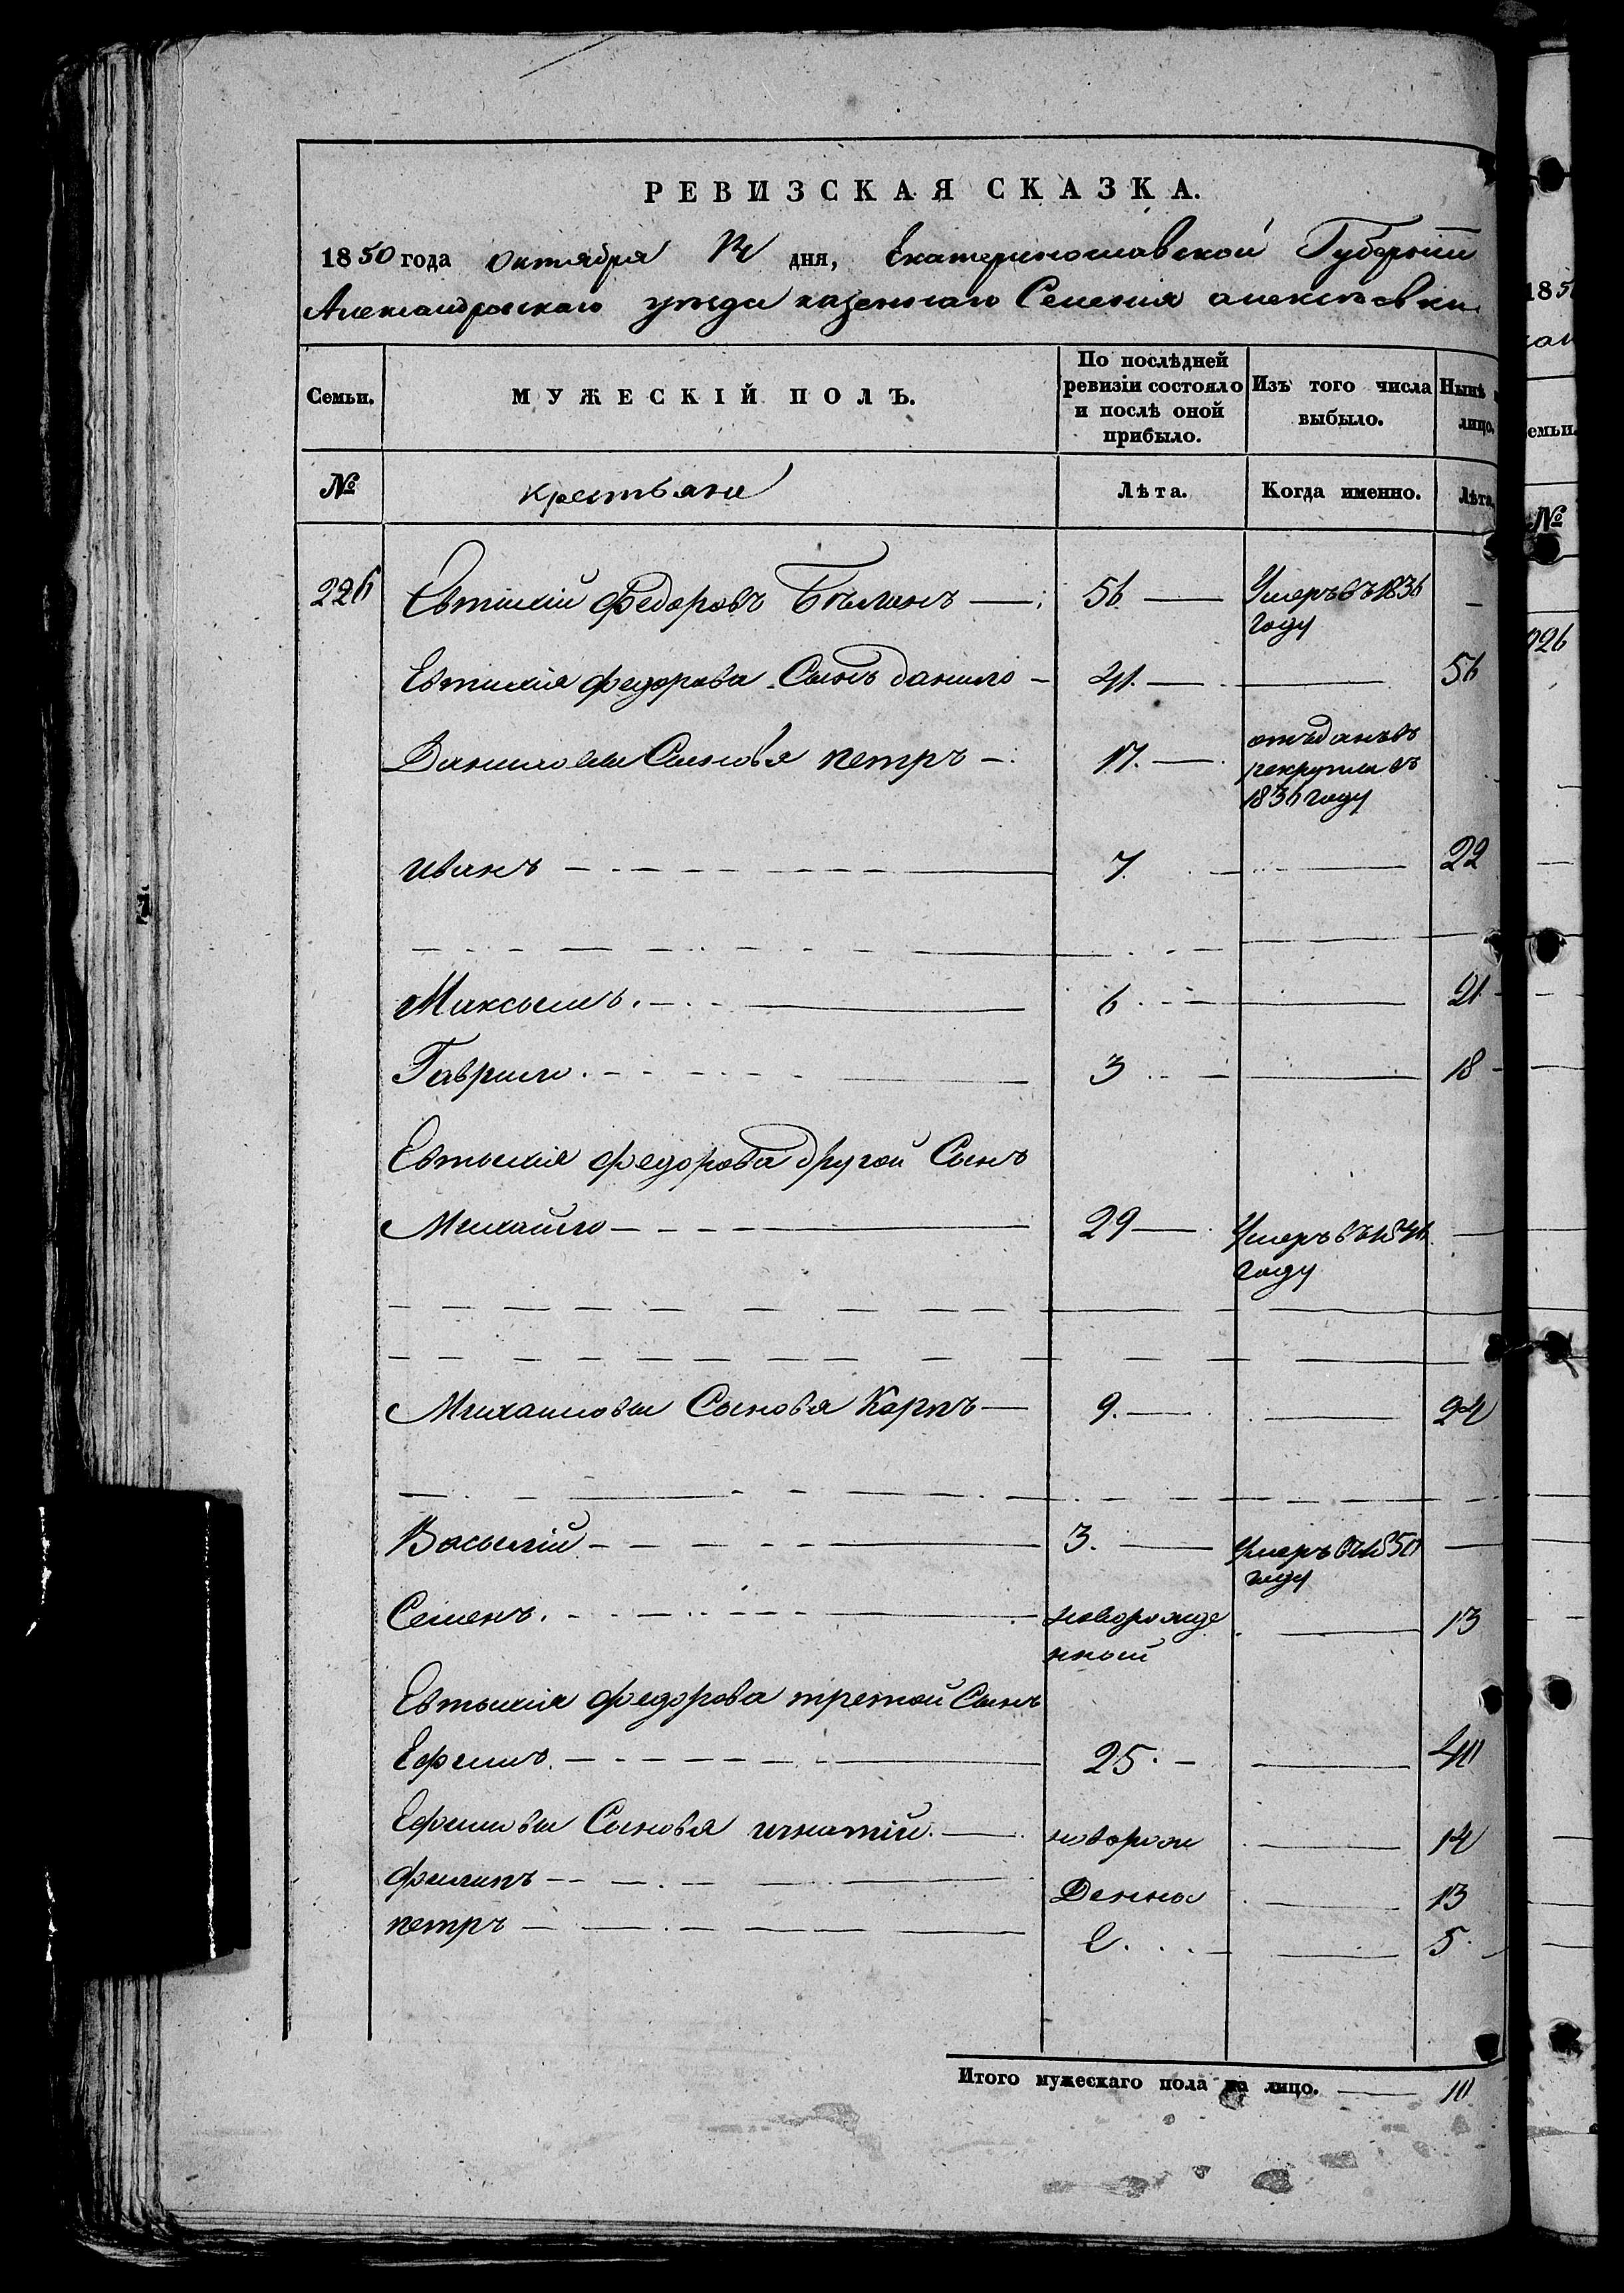 РЕВИЗСКАЯ СКАЗКА.
1850 года октября дня, Екатеринославской Губерніи
Александровскаго уезда казеннаго Селенія алексеевки
Семьи.
МУЖЕСКІЙ ПОЛЪ.
По послѣдней ревизіи состояло и послѣ оной прибыло.
Изъ того числа выбыло.
Нынѣ лицо.
№
крестьяне
Лѣта.
Когда именно.
Лѣта.
226 Евтихій Федоровъ 56 Умеръ въ 1836 году
Евтихія федорова Сынъ данило 41 56
Даниловы Сыновья петръ 17. отъданъ въ рекруты въ 1836 году
иванъ 7 22
Максымъ. 6 21
Гаврило. 3 18
Евтыхія федорова другой Сынъ
Михайло 29 Умеръ въ году
Михаиловы Сыновья Карпъ 9. 24
Васылій 3. Умеръ въ 1850 году
Семенъ. новорожде нный 13
Евтыхія федорова третой Сынъ
Ефимъ. 25. 40
Ефимовы Сыновья игнатій. новорож 14
филипъ Денны 13
петръ Е. 5
Итого мужескаго пола на лицо. 10
185
емьи.
№
226